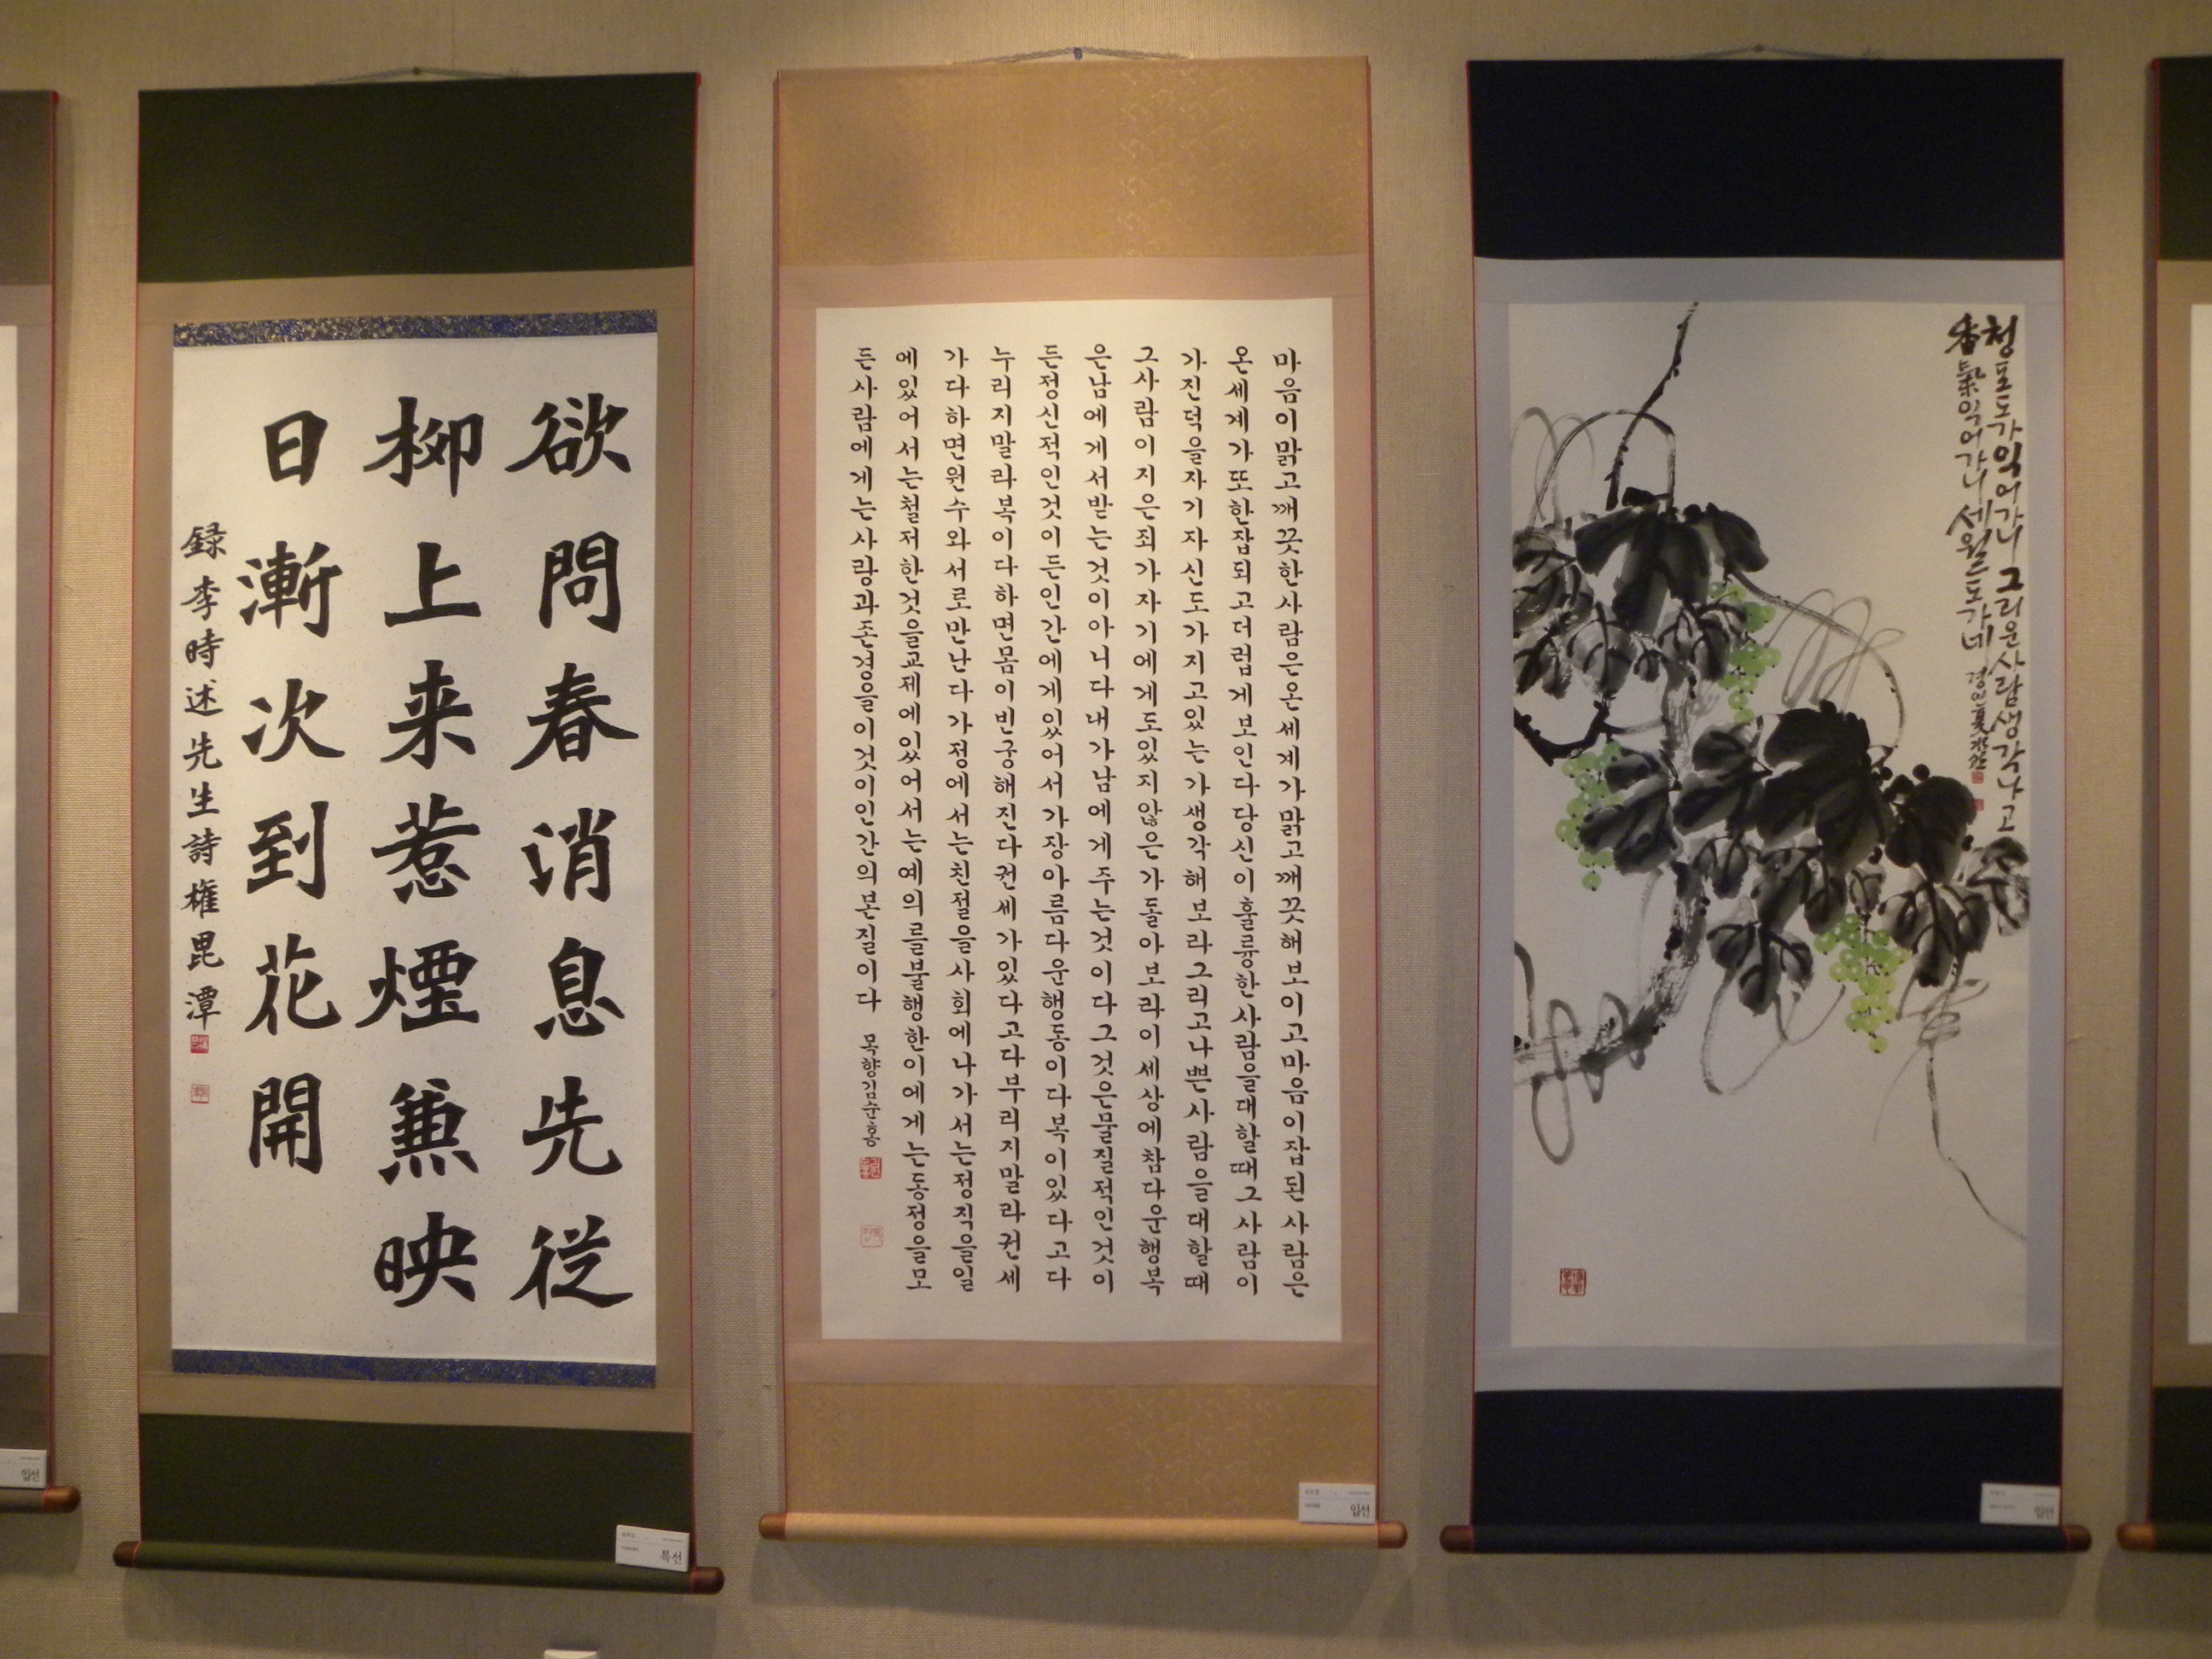 欲問春消息先從
柳上来惹煙兼映
日漸次到花開
録李時述先生詩權昆潭
특선
마음이맑고깨끗한사람은온세계가맑고깨끗해보이고마음이잡된사람은
온세계가또한잡되고더럽게보인다당신이훌륭한사람을대할때그사람이
가진덕을자기자신도가지고있는가생각해보라그리고나쁜사람을대할때
그사람이지은죄가자기에게도있지않은가돌아보라이세상에참다운행복
은남에게서받는것이아니다내가남에게주는것이다그것은물질적인것이
든정신적인것이든인간에게있어서가장아름다운행동이다복이있다고다
누리지말라복이다하면몸이빈궁해진다권세가있다고다부리지말라권세
가다하면원수와서로만난다가정에서는친절을사회에나가서는정직을일
에있어서는철저한것을교제에있어서는예의를불행한이에게는동정을모
든사람에게는사랑과존경을이것이인간의본질이다 목향김순홍
입선
청포도가익어가니그리운사람생각나고
香氣익어가니세월도가네
입선
입선